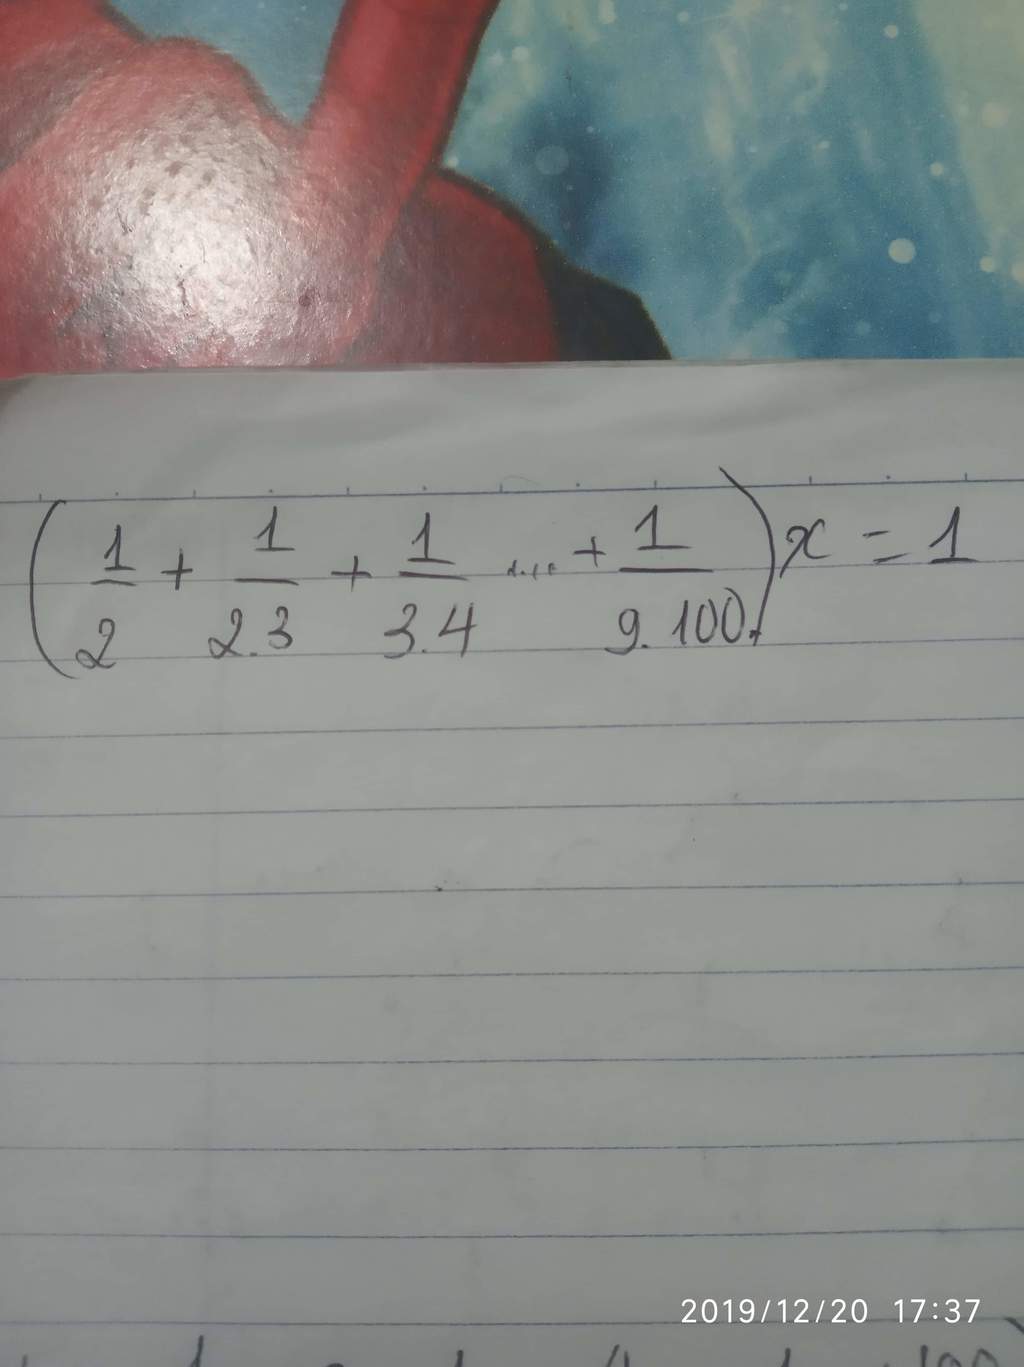 (1/2 + 1/2.3 + 1/3.4 .... + 1/9.100) x = 1
2019/12/20 17:37